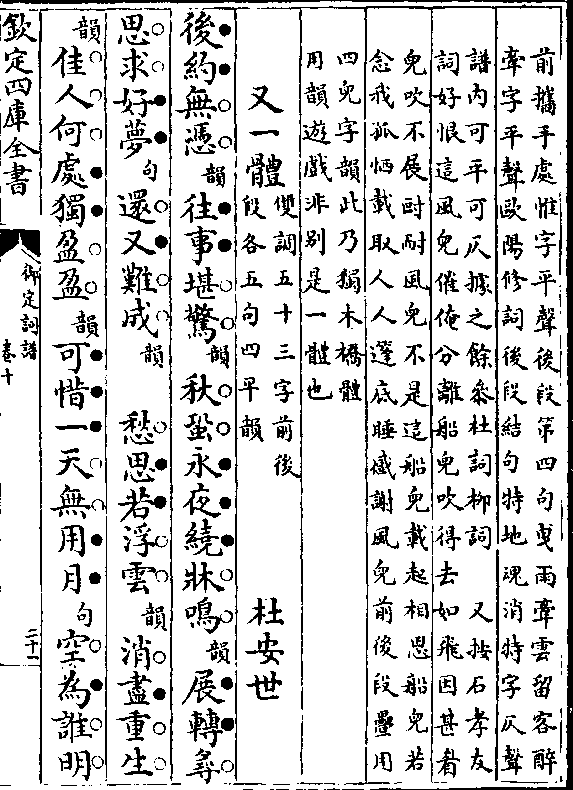 前攜手處惟字平聲後段第四句曳雨牽雲留客醉
牽字平聲歐陽修詞後段結句特地魂消特字仄聲
譜內可平可仄據之餘參杜詞柳詞　又按石孝友
詞好恨這風兒催俺分離船兒吹得去如飛因甚眉
兒吹不展叵耐風兒不是這船兒載起相思船兒若
念我孤恓載取人人篷底睡感謝風兒前後段疊用
四兒字韻此乃獨木橋體
用韻遊戲非別是一體也
又一體雙調五十三字前後段各五句四平韻　杜安世
後約無憑韻往事堪驚韻秋蛩永夜繞牀鳴韻展轉尋
思求好夢句還又難成韻　愁思若浮雲韻消盡重生
韻佳人何處獨盈盈韻可惜一天無用月句空為誰明
欽定四庫全書
御定詞譜
卷十
二十一